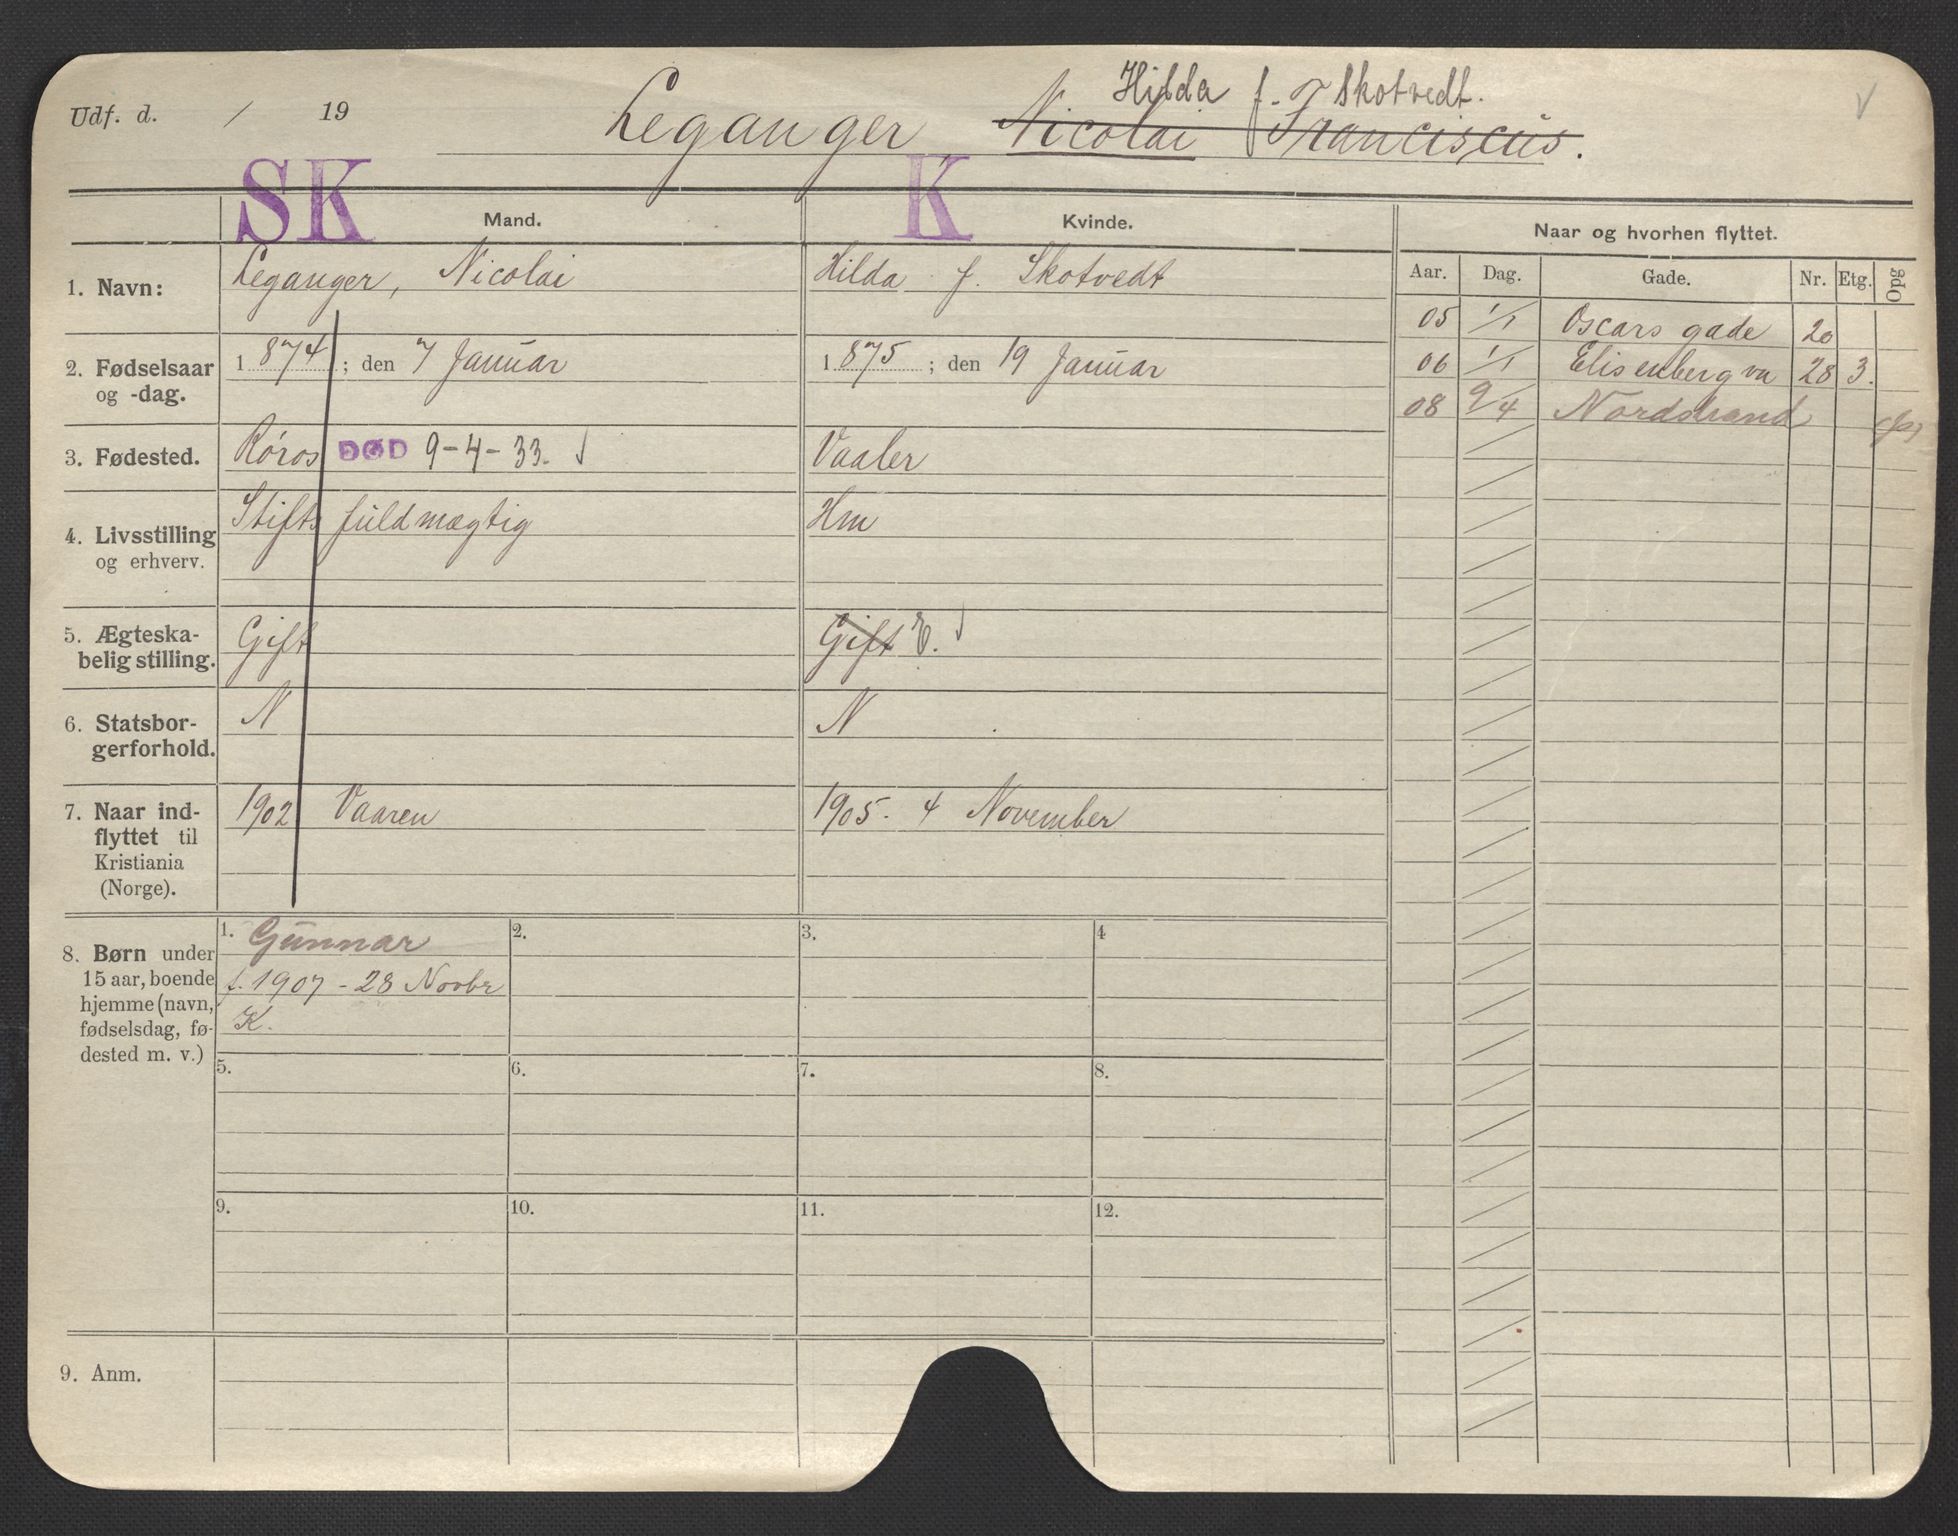 Udf. d. / 19
Hilda f. Skotvedt.
Leganger, Nicolai Franciscus.
SK Mand. K Kvinde. Naar og hvorhen flyttet.
Aar. Dag. Gade. Nr. Etg. Opg
1. Navn: Leganger, Nicolai Hilda f. Skotvedt
05 1/1 Oscars gade 20
2. Fødselsaar og -dag. 1 874 ; den 7 Januar 1 875 ; den 19 Januar
06 1/1 Elisenberg vn 28 3.
08 9/4 Nordstrand
3. Fødested. Røros DØD 9-4-33. Vaaler
4. Livsstilling og erhverv. Stifts fuldmægtig Hm
5. Ægteska-
belig stilling. Gift Gift E.
6. Statsbor-
gerforhold. N N
7. Naar ind-
flyttet til
Kristiania
(Norge). 1902 Vaaren 1905. 4 November
8. Børn under
15 aar, boende
hjemme (navn,
fødselsdag, fø-
dested m. v.)
1. Gunnar 2. 3. 4
f. 1907 - 28 Novbr
K.
5. 6. 7. 8.
9. 10. 11. 12.
9. Anm.